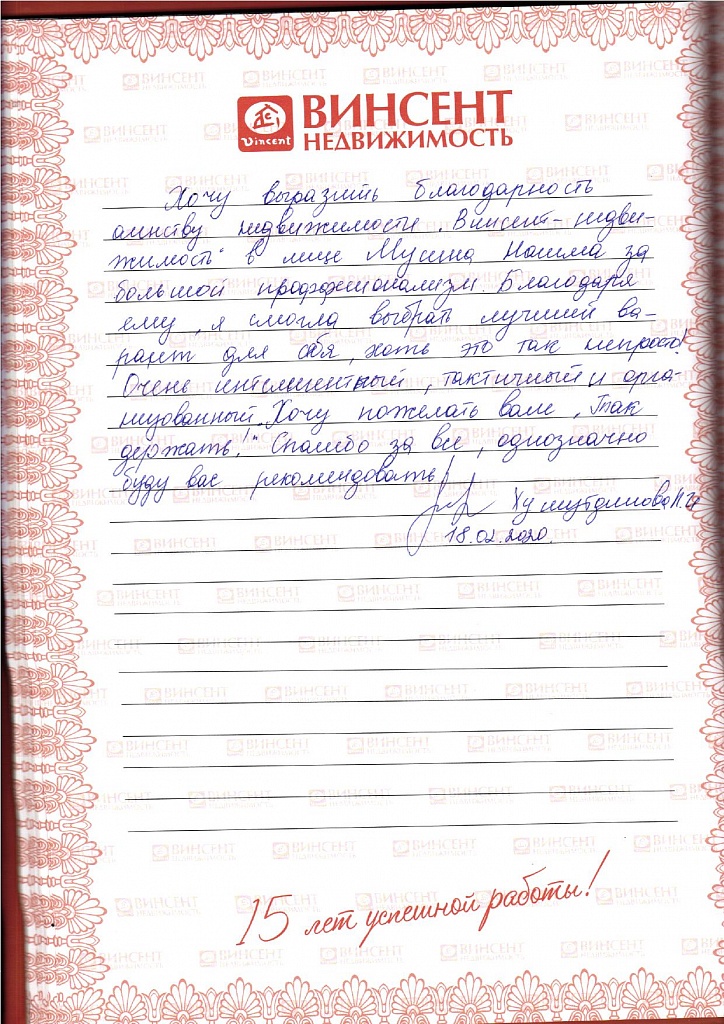 Vincent
ВИНСЕНТ
НЕДВИЖИМОСТЬ
Хочу выразить благодарность
агентству недвижимости „Винсент-недви-
жимость" в лице Мусина Наиля за
большой профессионализм. Благодаря
ему, я смогла выбрать лучший ва-
риант для себя, хоть это так непросто!
Очень интелигентный, тактичный и орга-
низованный. Хочу пожелать вам „Так
держать!" Спасибо за все, однозначно
буду вас рекомендовать!
18.02.2020.
15 лет успешной работы!